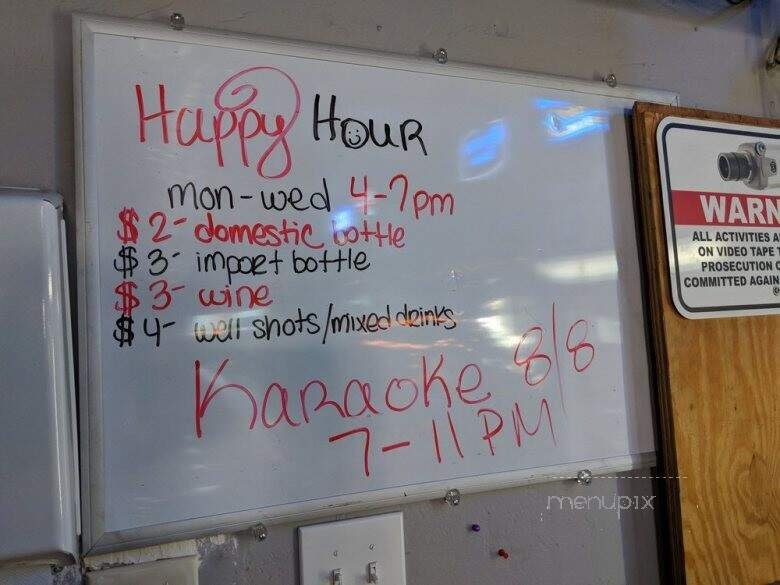 Happy Hour
mon-wed 4-7pm
$2- domestic bottle
$3- import bottle
$3- wine
$4- well shots/mixed drinks
Karaoke 8/8
7-11 PM
WARN
ALL ACTIVITIES
ON VIDEO TAPE
PROSECUTION
COMMITTED AGAIN
menupix